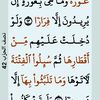 عَوْرَةٌ وَمَا هِيَ بِعَوْرَةٍ إِن
يُرِيدُونَ إِلَّا فِرَارًا ۝ وَلَوْ
دُخِلَتْ عَلَيْهِم مِّنْ
أَقْطَارِهَا ثُمَّ سُئِلُوا۟ ٱلْفِتْنَةَ
لَـَٔاتَوْهَا وَمَا تَلَبَّثُوا۟ بِهَآ إِلَّا
نصف الحزب 42